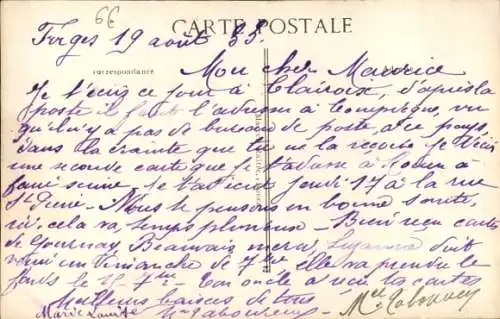 66
CARTE POSTALE
Forges 19 août 35.
correspondance
Mon cher Maurice
Je t'écris ce jour à Clairoix, d'après la
poste il faut l'adresser à Compiègne, vu
qu'il n'y a pas de bureau de poste, à ce pays,
dans la crainte que tu ne la reçoive je t'écris
une seconde carte que je t'adresse à
Jeudi 17 à la rue
Nous te pensons en bonne santé,
ici, cela va, temps pluvieux - Bien reçu cartes
de Gournay Beauvais merci, Suzanne doit
venir un Dimanche de 7bre elle va prendre le
Ton oncle a reçu tes cartes
Meilleurs baisers de tous
Marie Louise